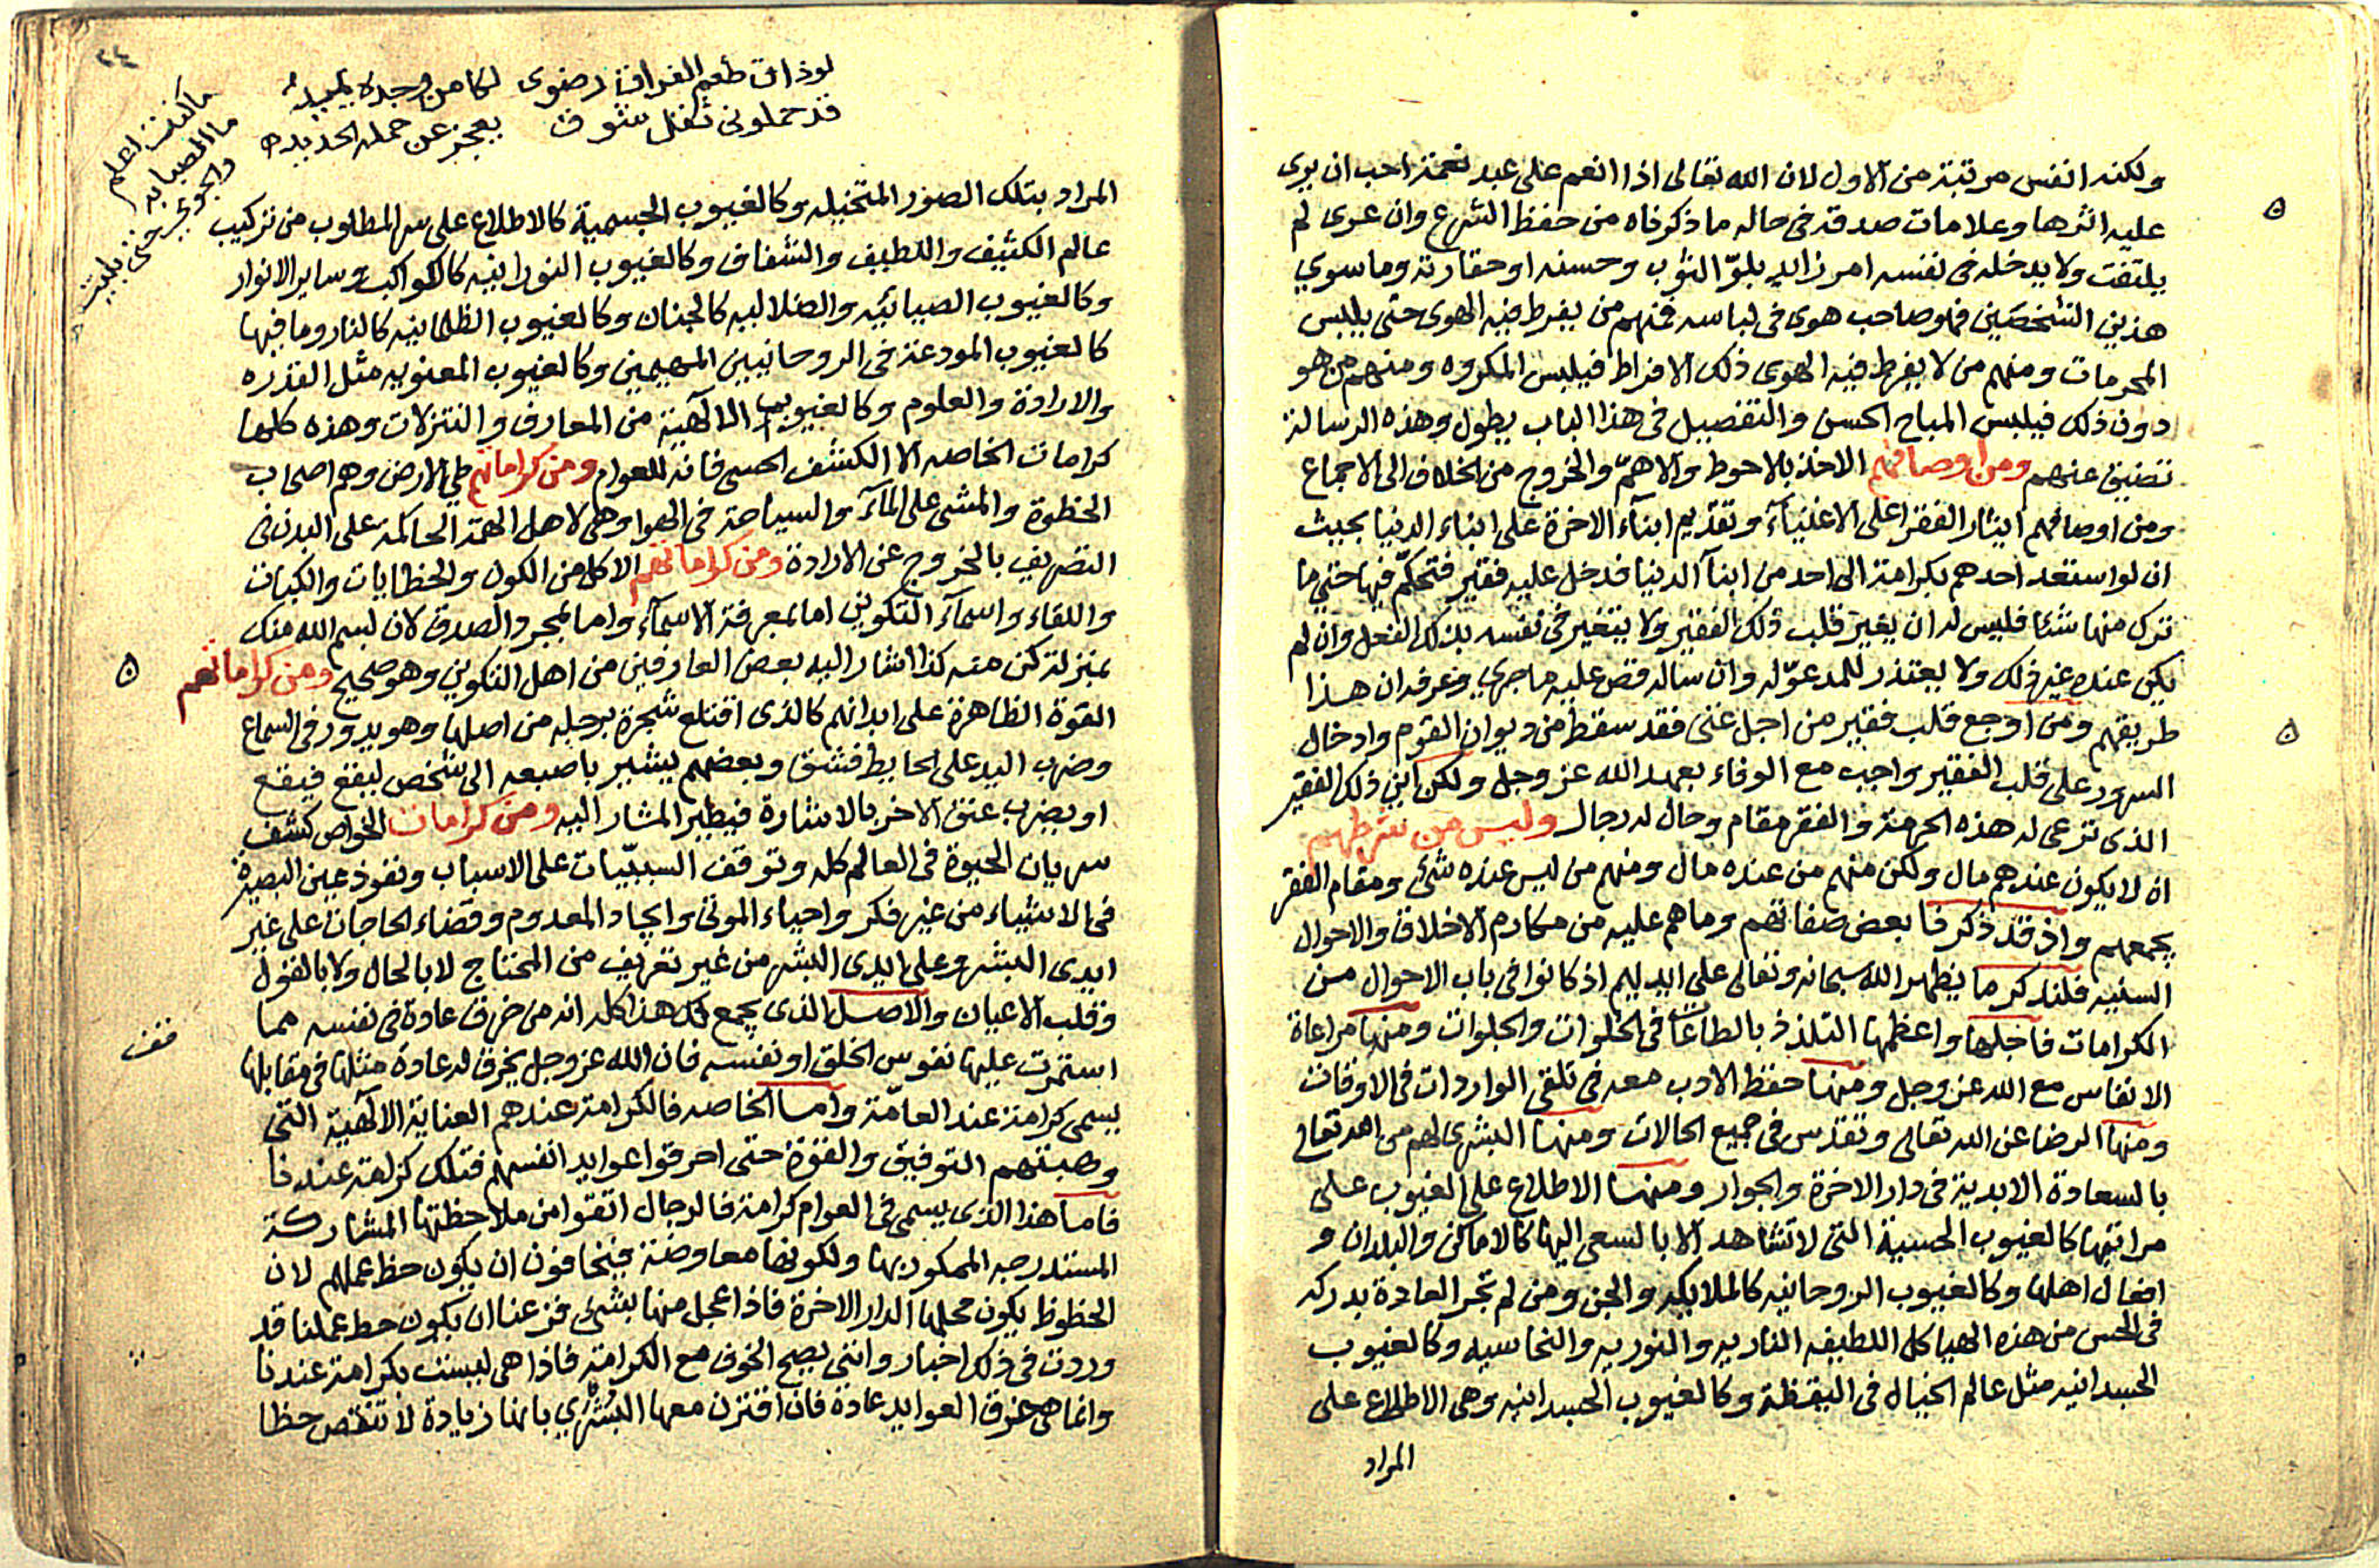 ولكنه انفس مرتبة من الاول لان الله تعالى اذا انعم على عبد نعمة احب ان يرى
عليه اثرها وعلامات صدقه فى حاله ما ذكرناه من حفظ الشرع وان عرى لم
يلتفت ولا يدخله فى نفسه امر زايد بلوّ الثوب وحسنه او حقارته وما سوي
هذين الشخصين فهو صاحب هوى فى لباسه فمنهم من يفرط فيه الهوى حتى يلبس
المحرمات ومنهم من لا يفرط فيه الهوى ذلك الافراط فيلبس المكروه ومنهم من هو
دون ذلك فيلبس المباح الحسن والتفصيل فى هذا الباب يطول وهذه الرسالة
تضيق عنهم ومن اوصافهم الاخذ بالاحوط والاهمّ والخروج من الخلاف الى الاجماع
ومن اوصافهم ايثار الفقرا على الاغنيآء وتقديم ابنآء الاخرة على ابناء الدنيا بحيث
ان لو استعد احدهم بكرامة الى احد من ابنآ الدنيا فدخل عليه فقير فتحكّم فيها حتي ما
ترك منها شئا فليس له ان يغير قلب ذلك الفقير ولا يتغير فى نفسه بذلك الفعل وان لم
يكن عنده غير ذلك ولا يعتذر للمدعوّ له وان ساله قص عليه ما جري وعرفه ان هذا
طريقهم ومن اوجع قلب فقير من اجل غنى فقد سقط من ديوان القوم وادخال
السرور على قلب الفقير واجب مع الوفاء بعهد الله عز وجل ولكن اين ذلك الفقير
الذى ترعى له هذه الحرمة والفقر مقام وحال له رجال وليس من شرطهم
ان لا يكون عندهم مال ولكن منهم من عنده مال ومنهم من ليس عنده شئ ومقام الفقر
يجمعهم واذ قد ذكرنا بعض صفاتهم وما هم عليه من مكارم الاخلاق والاحوال
السنيه فلنذكر ما يظهر الله سبحانه وتعالى على ايديهم اذ كانوا فى باب الاحوال من
الكرامات فاجلها واعظمها التلذذ بالطاعات فى الخلوات والجلوات ومنها مراعاة
الانفاس مع الله عز وجل ومنها حفظ الادب معه فى تلقى الواردات فى الاوقات
ومنها الرضا عن الله تعالى وتقدّس فى جميع الحالات ومنها البشرى لهم من الله تعالى
بالسعادة الابدية فى دار الاخرة والجوار ومنها الاطلاع على الغيوب على
مراتبها كالغيوب الحسية التى لا تشاهد الا بالسعى اليها كالاماكن والبلدان و
افعال اهلها وكالغيوب الروحانيه كالملايكه والجن ومن لم تجر العادة بدركه
فى الحس من هذه الهياكل اللطيفه الناريه والنوريه والنحاسيه وكالغيوب
الجسدانيه مثل عالم الخيال فى اليقظة وكالغيوب الجسدانيه وهى الاطلاع على
المراد
٢٤
لو ذاق طعم الفراق رضوى لكان من وجده يميد
قد حملونى ثقل شوق يعجز عن حمله الحديد
ما كنت اعلم
ما الصبابه
والجوى حتى بليت
المراد بتلك الصور المتخيله وكالغيوب الجسمية كالاطلاع على سر المطلوب من تركيب
عالم الكثيف واللطيف والشفاف وكالغيوب النورانيه كالكواكب وساير الانوار
وكالغيوب الضيائيه والظلاليه كالجنان وكالغيوب الظلمانيه كالنار وما فيها
كالغيوب المودعة فى الروحانيين المهيمين وكالغيوب المعنويه مثل القدره
والارادة والعلوم وكالغيوب الالآهية من المعارف والتنزلات وهذه كلها
كرامات الخاصه الا الكشف الحسى فانه للعوام ومن كراماتهم طي الارض وهم اصحاب
الخطوة والمشى على المآء والسياحة فى الهوا وهى لاهل الهمة الحاكمة على البدن فى
التصريف بالخروج عن الارادة ومن كراماتهم الاكل من الكون والخطابات والكتبات
واللقاء واسمآء التكوين اما بمعرفة الاسمآء واما بمجرد الصدق لان بسم الله منك
بمنزلة كن منه كذا اشار اليه بعض العارفين من اهل التكوين وهو صحيح ومن كراماتهم
القوة الظاهرة على ابدانهم كالذى اقتلع شجرة برجله من اصلها وهو يدور فى السماع
وضرب اليد على الحايط فشق وبعضهم يشير باصبعه الى شخص ليقع فيقع
او يضرب عنق الاخر بالاشارة فيطير المشار اليه ومن كرامات الخواص كشف
سريان الحيوة فى العالم كله وتوقف السببيّات على الاسباب ونفوذ عين البصيرة
فى الاشياء من غير فكر واحياء الموتى وايجاد المعدوم وقضاء الحاجات على غير
ايدى البشر وعلى ايدى البشر من غير تعريف من المحتاج لا بالحال ولا بالقول
وقلب الاعيان والاصل الذى يجمع لك هذا كله انه من خرق عادة فى نفسه مما
استمرت عليها نفوس الخلق او نفسه فان الله عز وجل يخرق له عادة مثلها فى مقابلها
يسمى كرامة عند العامّة واما الخاصه فالكرامة عندهم العناية الالآهية التى
وهبتهم التوفيق والقوة حتى احرقوا عوايد انفسهم فتلك كرامة عندنا
فاما هذا الذى يسمى فى العوام كرامة فالرجال اتقوا من ملاحظتها المشاركة
المستدرجه الممكور بها ولكونها معاوضة فيخافون ان يكون حظ عملهم لان
الحظوظ يكون محلها الدار الاخرة فاذا عجل منها بشئ فزعنا ان يكون حظ عملنا قد
وردت فى ذلك اخبار وانى يصح الخوف مع الكرامة فاذا هى ليست بكرامة عندنا
وانما هى خرق العوايد عادة فان اقترن معها البشري بانها زيادة لا تنقص حظا